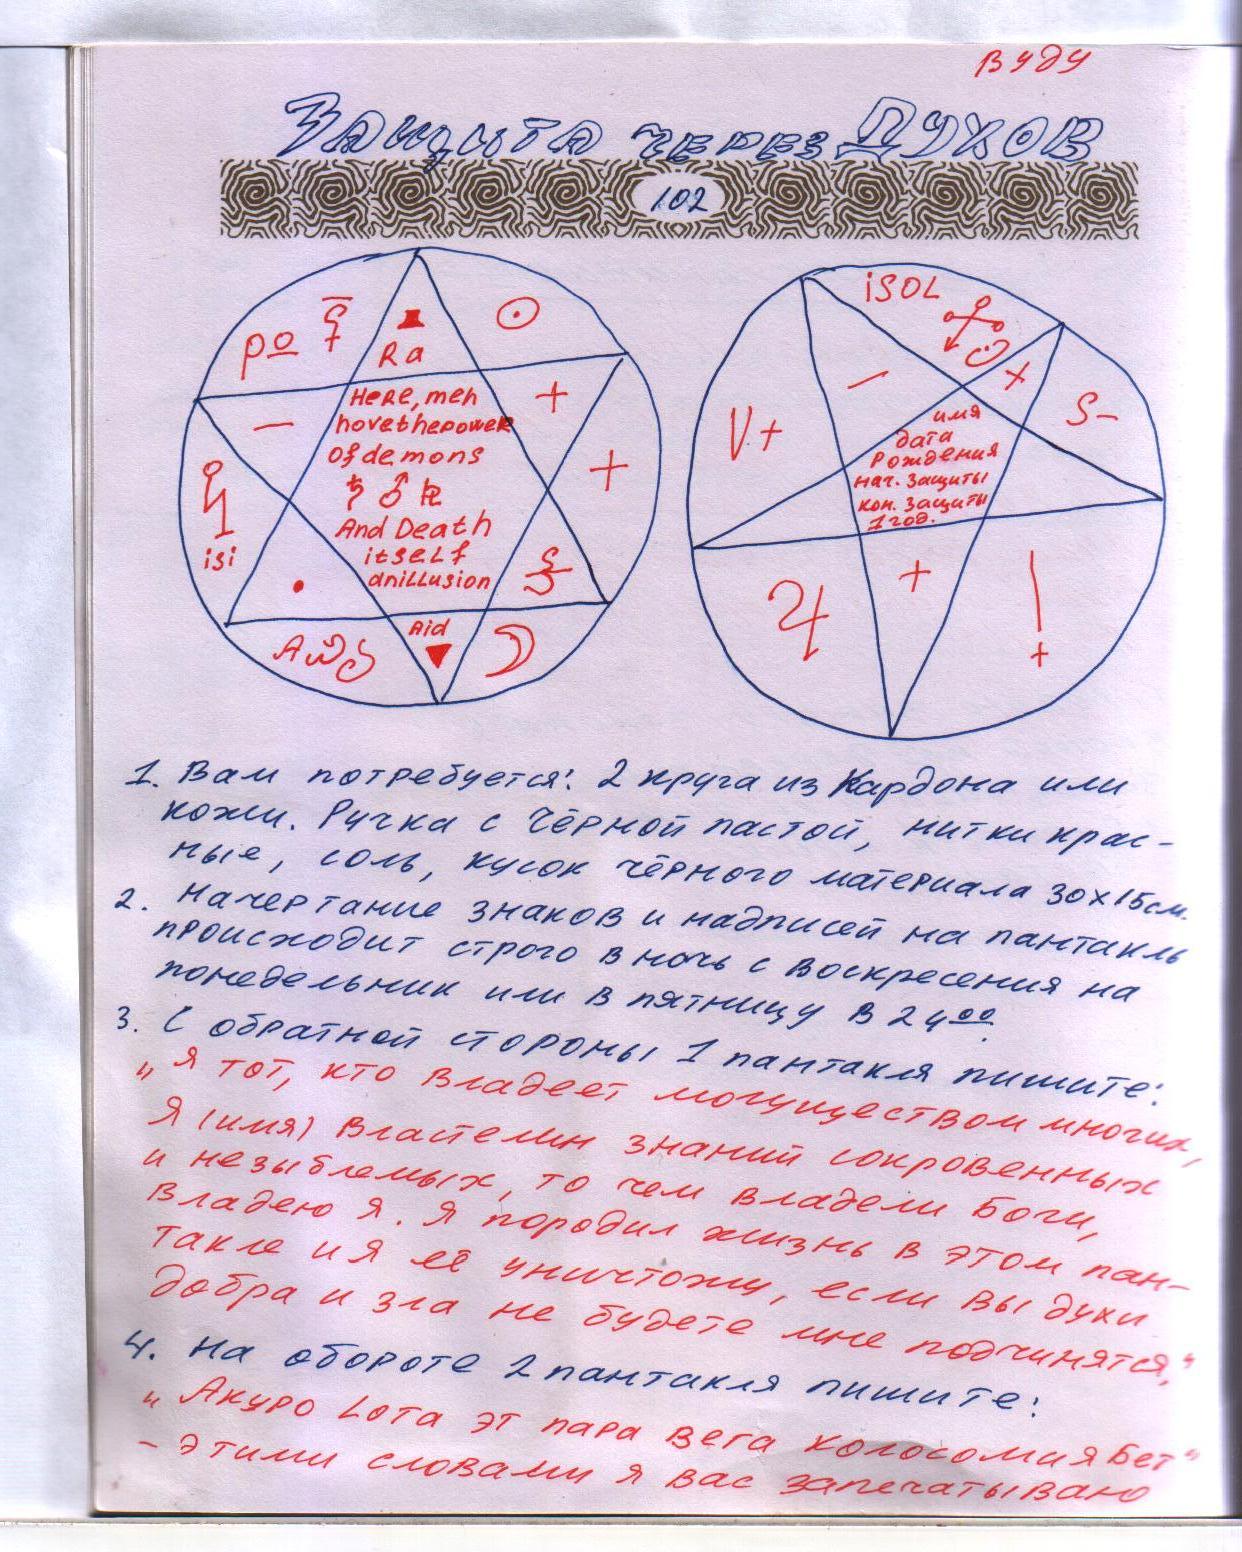 Вуду
Защита через Духов
102
Ra
Here, men
hovethepower
Of demons
And Death
itself
anillusion
isi
Aid
iSOL
V+
S-
имя
дата
Рождения
нач. защиты
кон. защиты
1 год.
1. Вам потребуется: 2 круга из Кардона или
кожи. Ручка с Чёрной пастой, нитки крас-
ные, соль, кусок чёрного материала 30х15см.
2. Начертание знаков и надписей на пантакль
происходит строго в ночь с Воскресения на
понедельник или в пятницу в 24 00.
3. С обратной стороны 1 пантакля пишите:
"Я тот, кто Владеет могуществом многих,
Я (имя) Властелин знаний сокровенных
и незыблемых, то чем владели Боги,
Владею Я. Я породил жизнь в этом пан-
такле и Я её уничтожу, если Вы духи
добра и зла не будете мне подчинятся,"
4. На обороте 2 пантакля пишите:
"Акуро Lота эт пара Вега колосомия Бет"
- этими словами я вас запечатываю